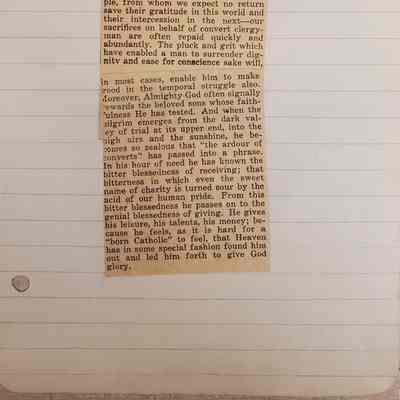 ple, from whom we expect no return
save their gratitude in this world and
their intercession in the next—our
sacrifices on behalf of convert clergy-
man are often repaid quickly and
abundantly. The pluck and grit which
have enabled a man to surrender dig-
nity and ease for conscience sake will,
in most cases, enable him to make
good in the temporal struggle also.
Moreover, Almighty God often signally
rewards the beloved sons whose faith-
fulness He has tested. And when the
pilgrim emerges from the dark val-
ley of trial at its upper end, into the
high airs and the sunshine, he be-
comes so zealous that "the ardour of
converts" has passed into a phrase.
In his hour of need he has known the
bitter blessedness of receiving; that
bitterness in which even the sweet
name of charity is turned sour by the
acid of our human pride. From this
bitter blessedness he passes on to the
genial blessedness of giving. He gives
his leisure, his talents, his money; be-
cause he feels, as it is hard for a
"born Catholic" to feel, that Heaven
has in some special fashion found him
out and led him forth to give God
glory.